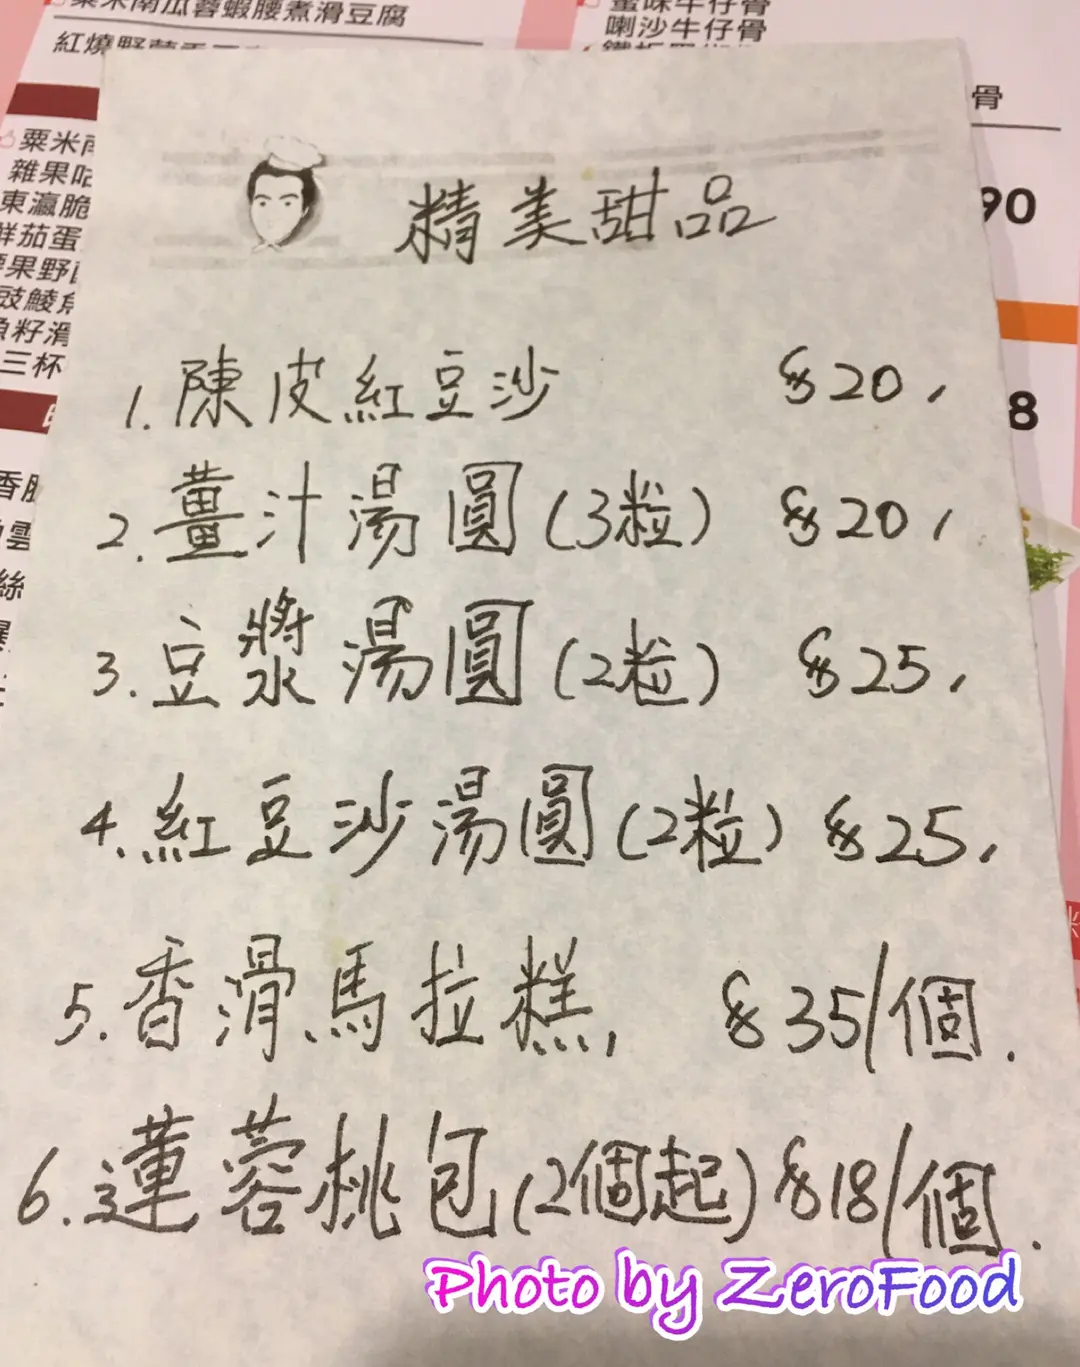 粟米南瓜蓉蝦腰煮滑豆腐
紅燒野
喇沙牛仔骨
骨
90
8
粟米
雜果咕
東瀛脆
鮮茄蛋
果野
豉鯪魚
魚籽滑
三杯
精美甜品
1. 陳皮紅豆沙 $20,
2. 薑汁湯圓(3粒) $20,
3. 豆漿湯圓(2粒) $25,
4. 紅豆沙湯圓(2粒) $25,
5. 香滑馬拉糕, $35/個.
6. 蓮蓉桃包(2個起) $18/個.
Photo by ZeroFood